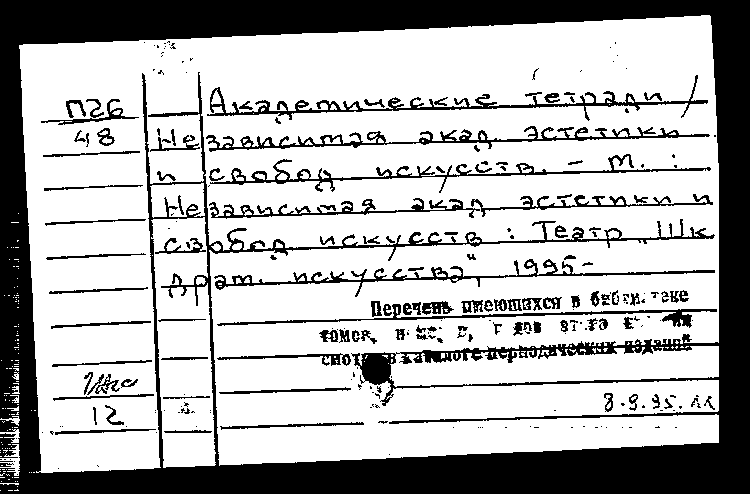 П26
48
Академические тетради /
Независимая акад. эстетики
и свобод искусств. - М. :
Независимая акад эстетики и
свобод искусств : Театр „Шк
драт. искусства", 1995-
Перечень имеющихся в библиотеке
томов,
смотри в каталоге периодических изданий
12
8.9.95.